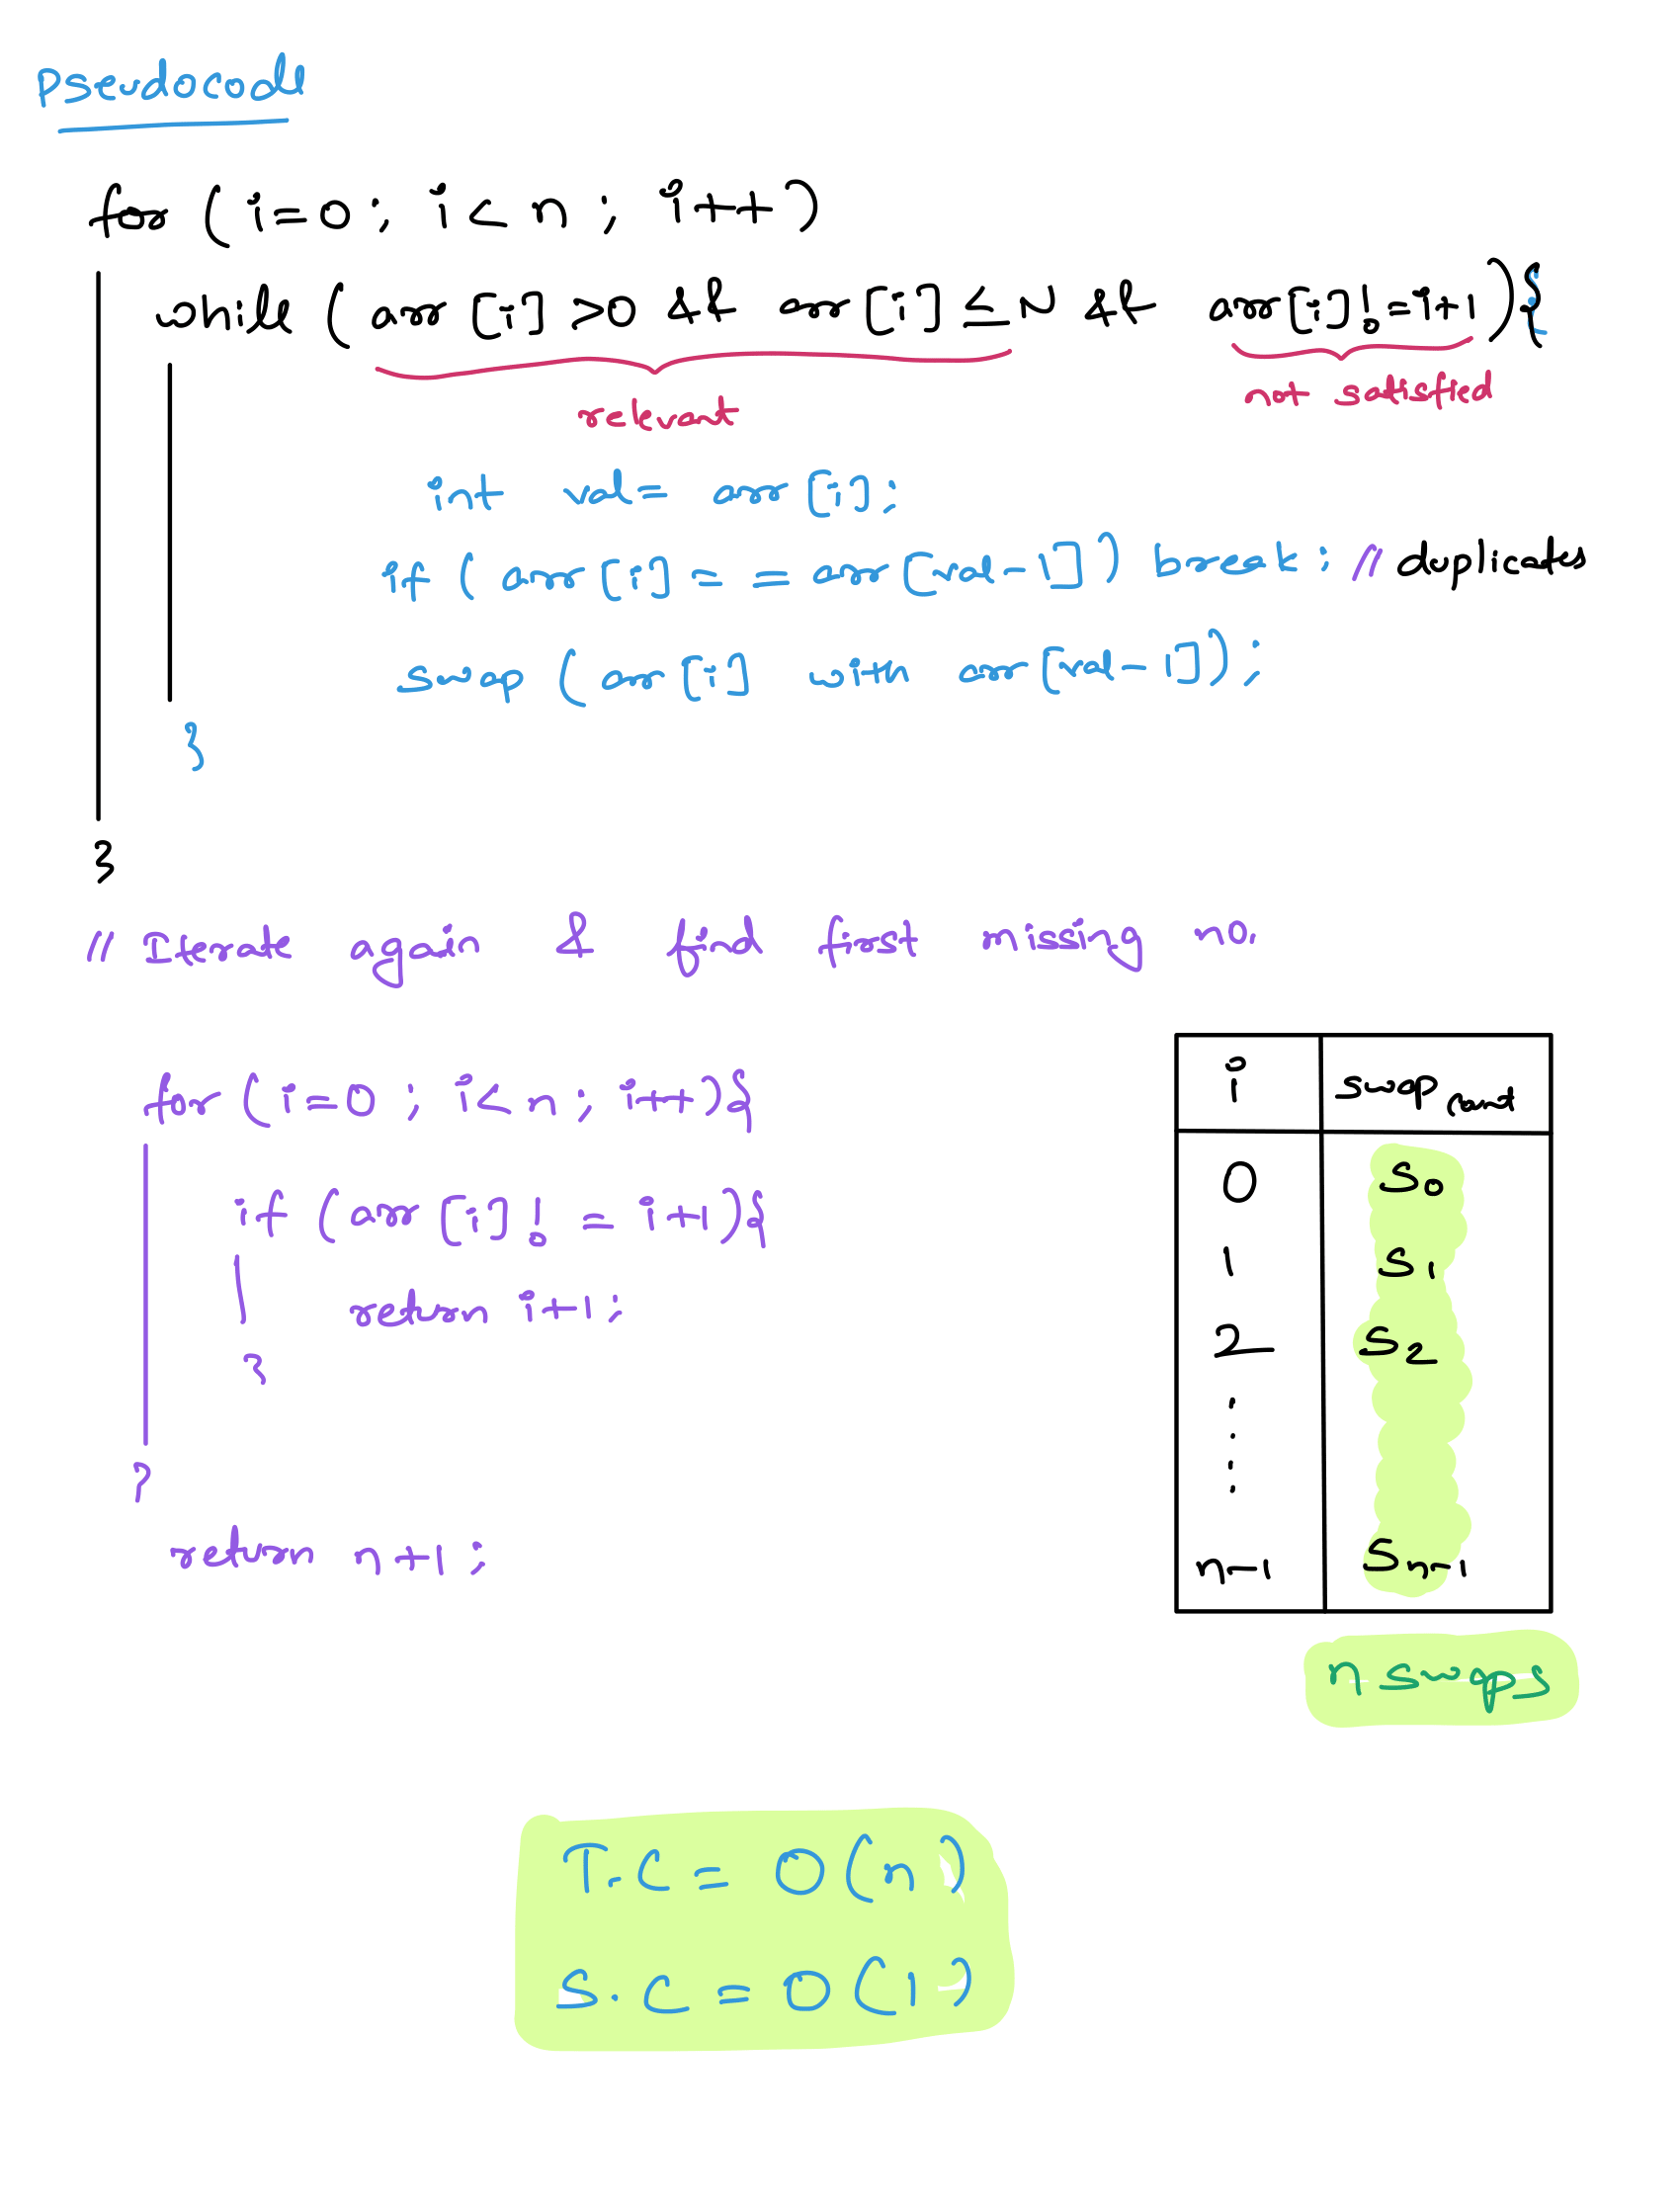 Pseudocode
for (i=0; i<n; i++)
while (arr[i]>0 && arr[i]≤N && arr[i]!=i+1){
relevant
not satisfied
int val= arr[i];
if (arr[i]==arr[val-1]) break; // duplicates
swap (arr[i] with arr[val-1]);
}
}
// Iterate again & find first missing no.
for (i=0; i<n; i++){
if (arr[i]!=i+1){
return i+1;
}
}
return n+1;
i swap count
0 S0
1 S1
2 S2
n-1 Sn-1
n swaps
T.C = O(n)
S.C = O(1)